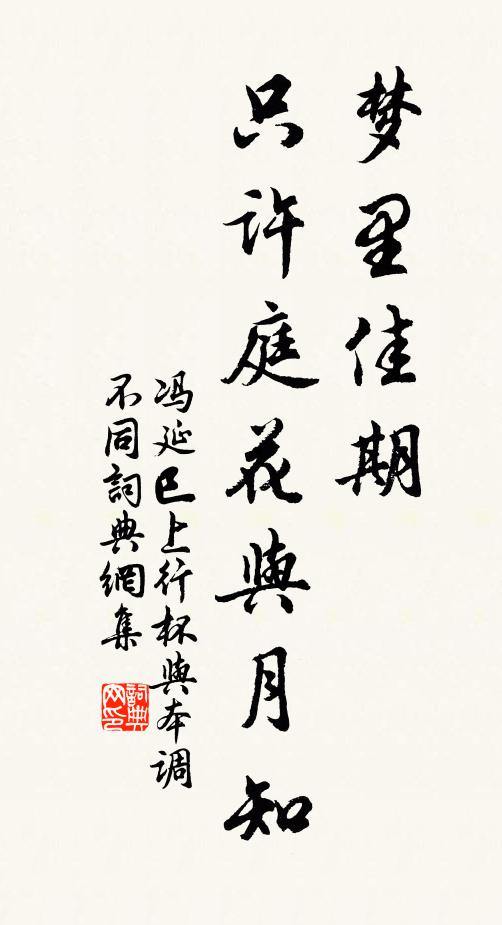 梦里佳期
只许庭花與月知
冯延巳上行杯與本调
不同詞典網集
詞典网印